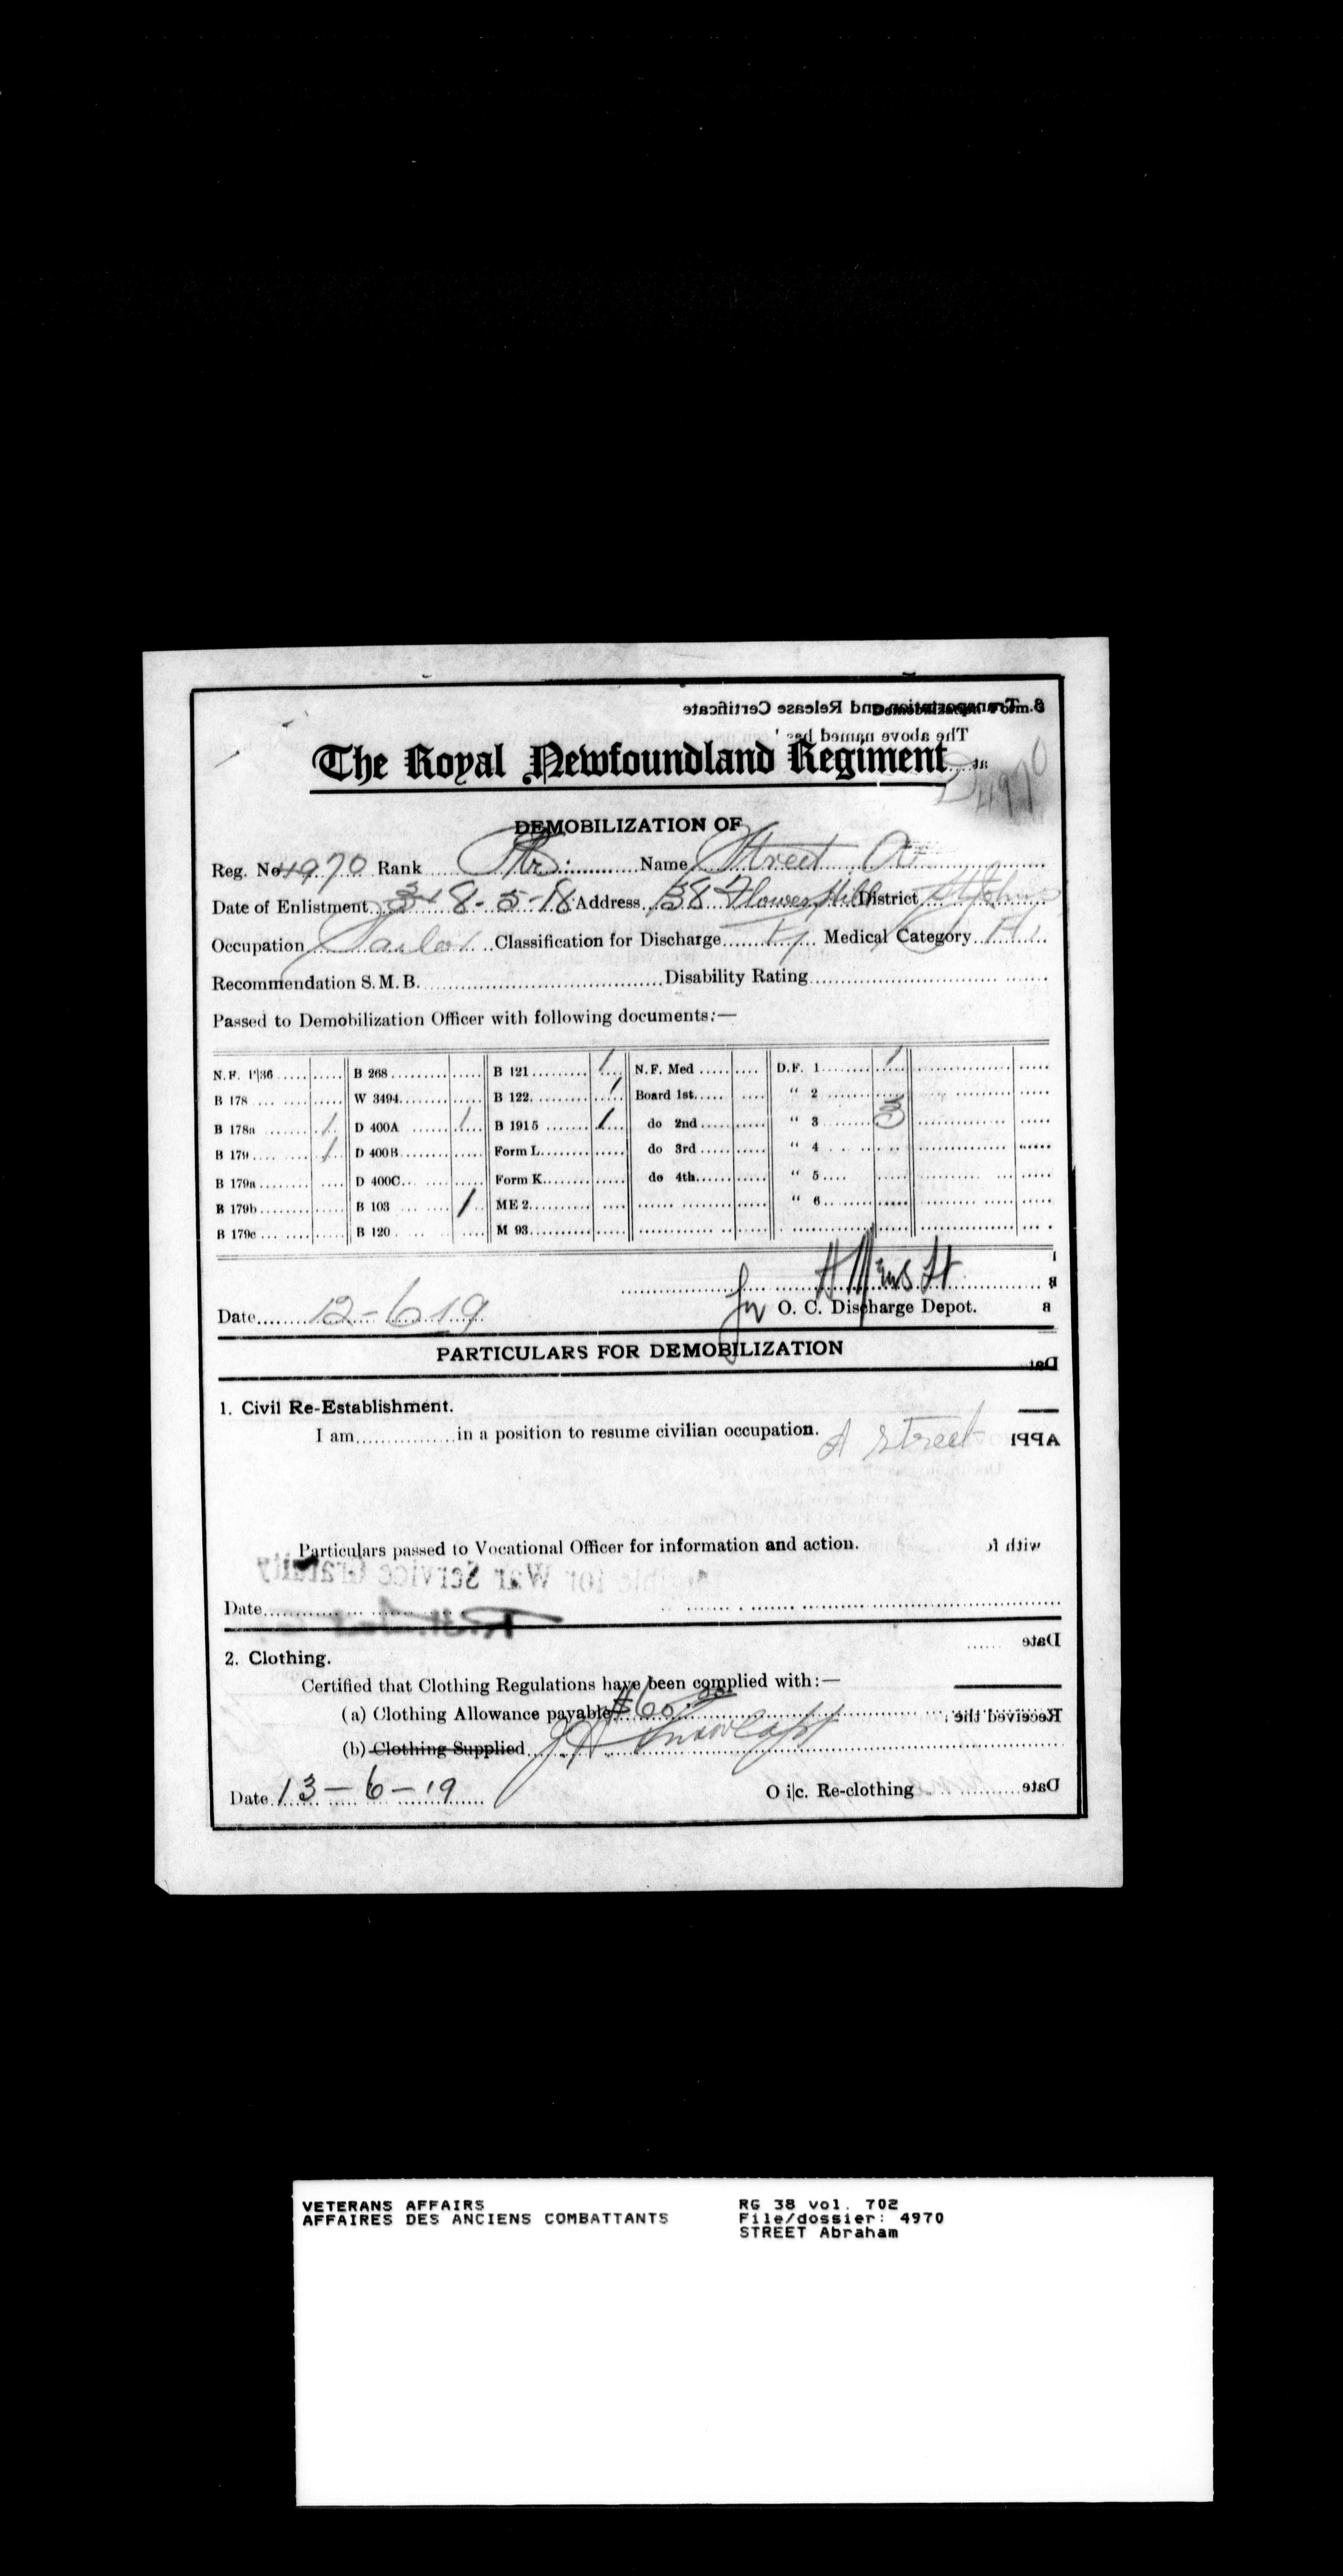 The Royal Newfoundland Regiment
4970
DEMOBILIZATION OF
Reg. No 4970 Rank Pte. Name Street A.
Date of Enlistment 8-5-18 Address 58 Flower Hill District St Johns
Occupation Tailor Classification for Discharge Medical Category A1
Recommendation S. M. B. Disability Rating
Passed to Demobilization Officer with following documents:—
N. F. P|36 B 268 B 121 / N. F. Med D. F. 1 /
B 178 W 3494 B 122 / Board 1st " 2
B 178a / D 400A / B 1915 / do 2nd " 3
B 179 / D 400B Form L do 3rd " 4
B 179a D 400C Form K do 4th " 5
B 179b B 103 / ME 2 " 6
B 179c B 120 M 93
Date 12-6-19 for O. C. Discharge Depot.
PARTICULARS FOR DEMOBILIZATION
1. Civil Re-Establishment.
I am in a position to resume civilian occupation. A Street
Particulars passed to Vocational Officer for information and action.
Date
2. Clothing.
Certified that Clothing Regulations have been complied with:—
(a) Clothing Allowance payable $60.00
(b) Clothing Supplied
Date 13-6-19 O i|c. Re-clothing
VETERANS AFFAIRS RG 38 vol. 702
AFFAIRES DES ANCIENS COMBATTANTS File/dossier: 4970
STREET Abraham